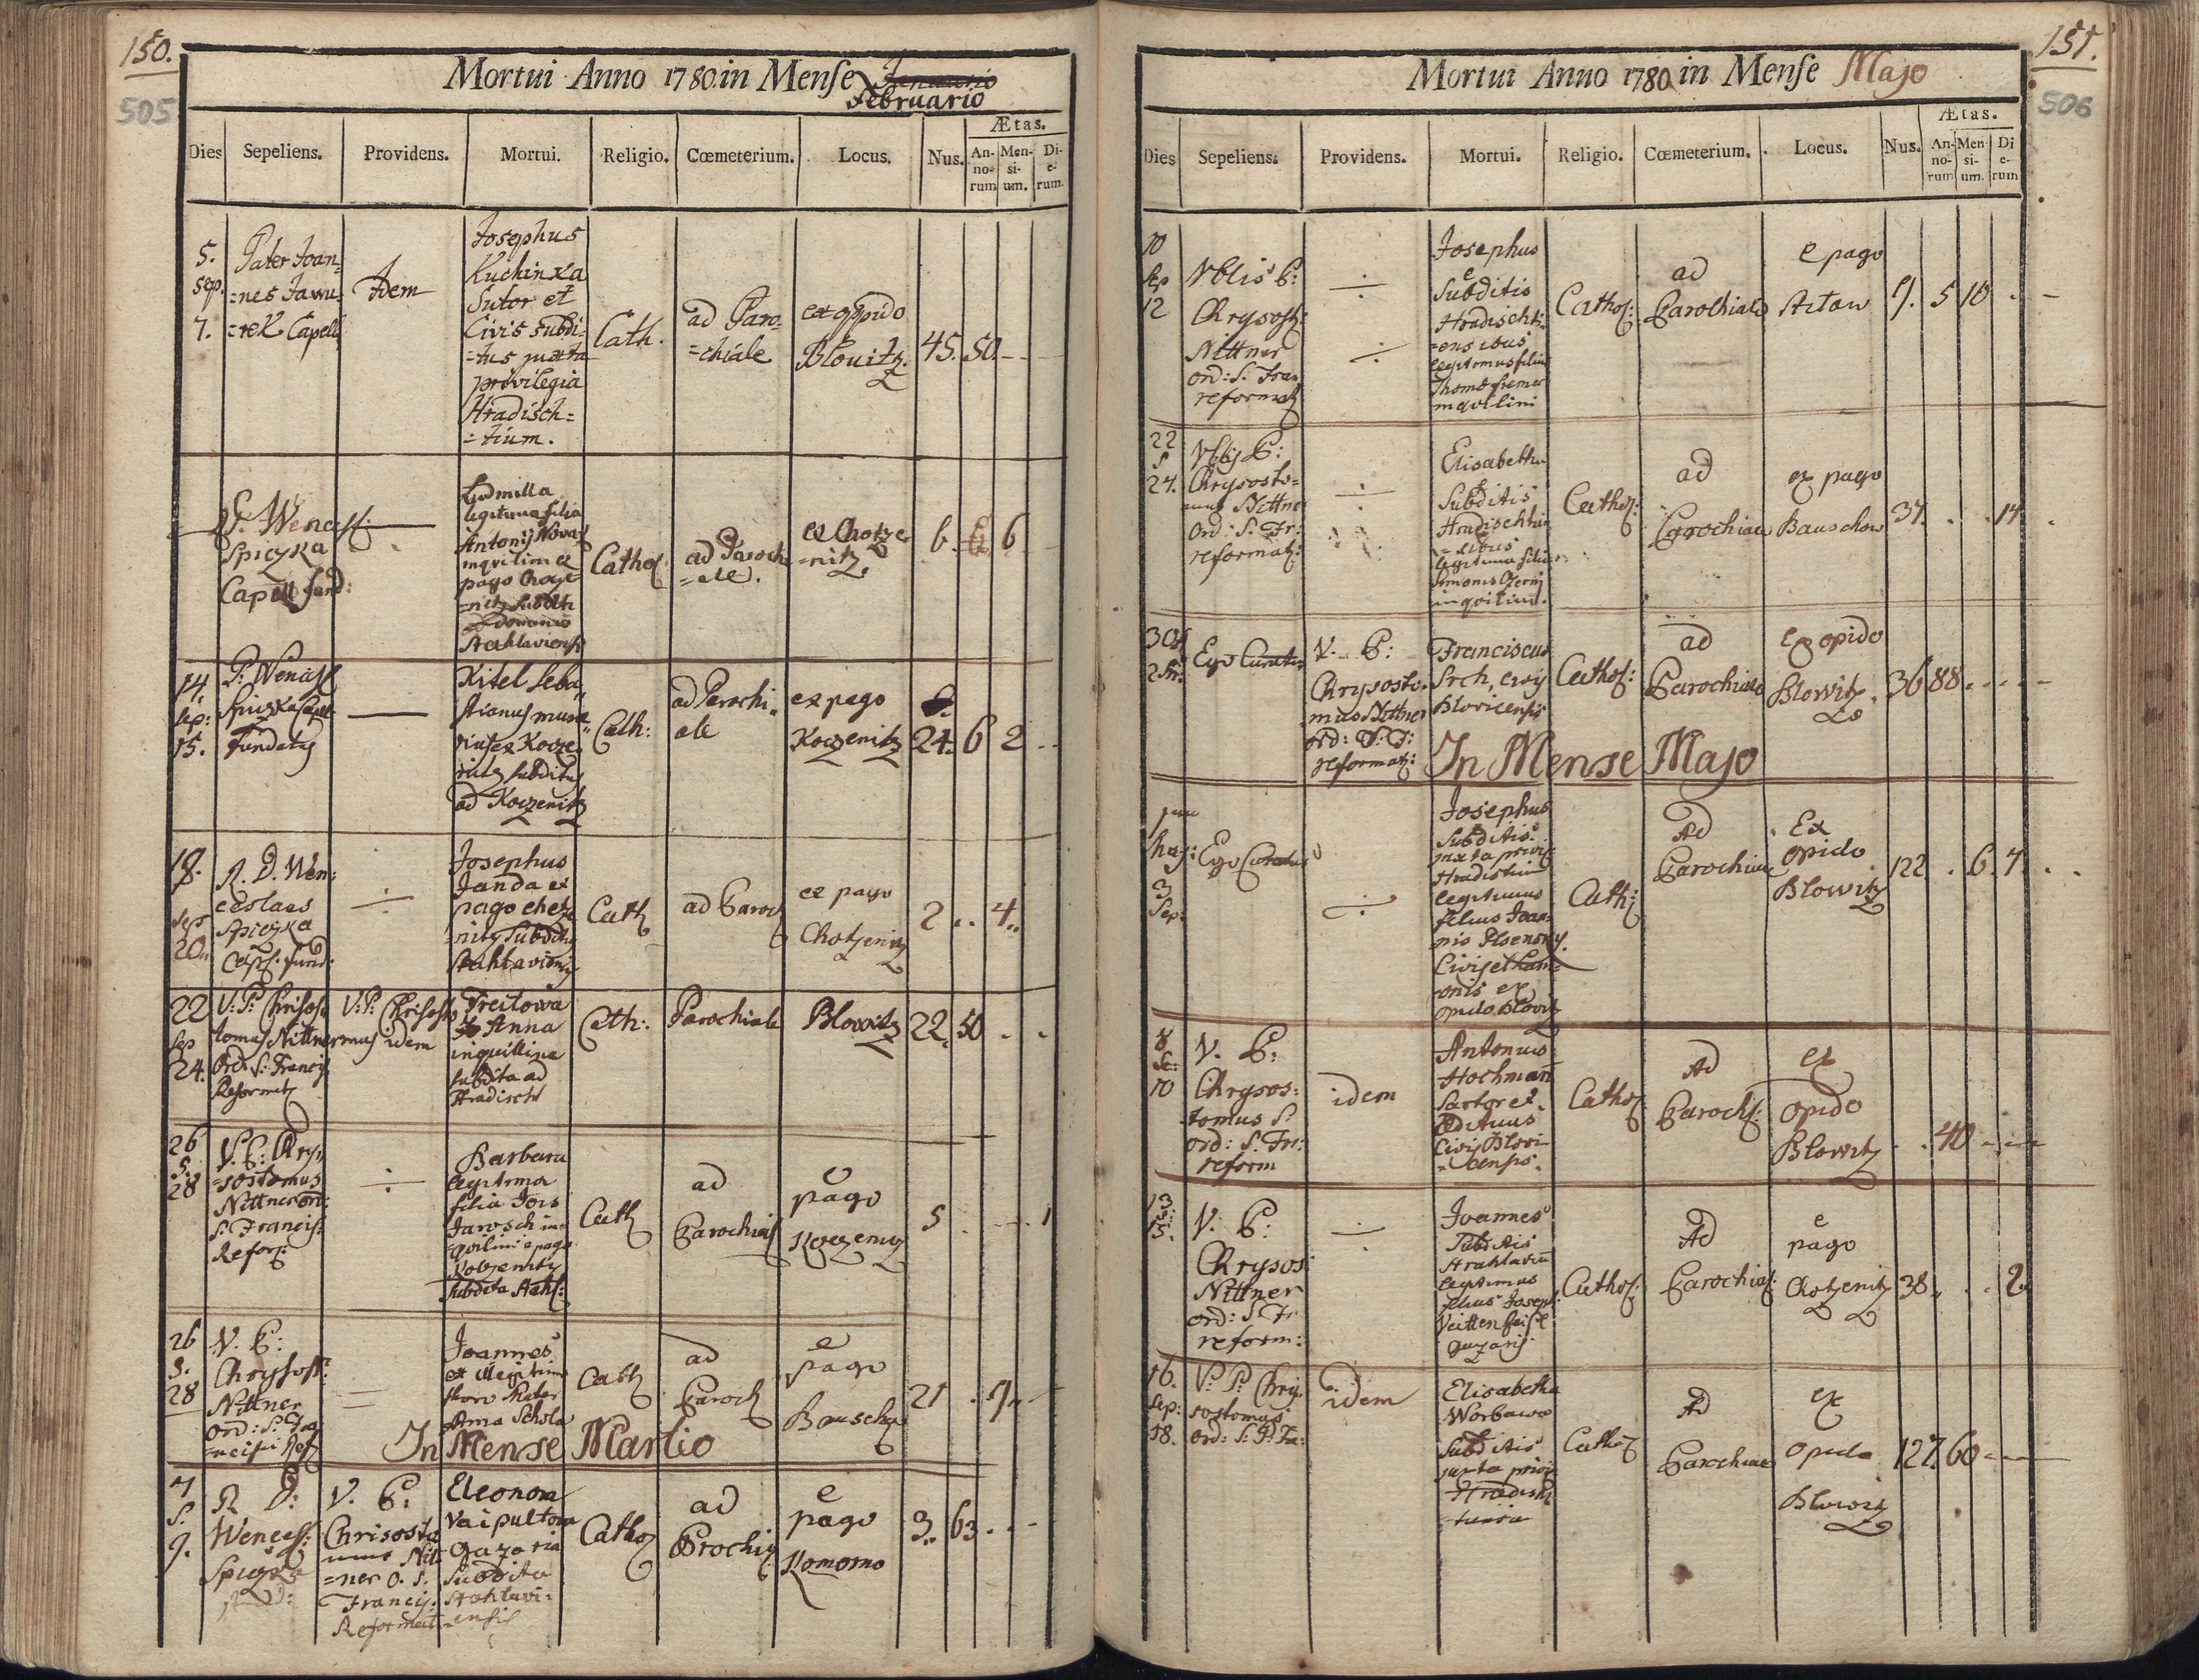 150.
505
Mortui Anno 1780. in Mense Januario
Februario
Dies
Sepeliens.
Providens.
Mortui.
Religio.
Cœmeterium.
Locus.
Nus.
Ætas.
An-
no-
rum
Men-
si-
um.
Di-
e-
rum.
5.
sep.
7.
Pater Joan=
=nes Jawu=
=rek Capell
Idem
Josephus
Kuchinka
Sutor et
Civis subdi=
=tus juxta
privilegia
Hradisch=
=tium.
Cath.
ad Paro=
=chiale
ex oppido
Blovitz.
45.
50.
P. Wencesl:
Spiczka
Capell fund:
Ludmilla
legitima filia
Antonij Nova
inquilini ex
pago Choze
=nitz subditi
Stahlaviensi
Cathol
ad Paroch
=ale.
ex Chotze
=nitz
6.
6
14.
sep:
15.
P. Wencesl
Spiczka Capel
Fundatus
Kitel Seba,,
stianus
Koczenitz subditus
ad Koczenitz
Cath:
ad Parochi,,
ale
ex pago
Koczenitz
24.
6
2
18.
sep
20.
R. D. Wen:
ceslaus
Spiczka
Capl. fund:
Josephus
Janda ex
pago chotze
=nitz Subditus
Stahlaviens
Cath
ad Paroch
ex pago
Chotzenitz
2
4.
22
sep
24.
V: P: Chrisos
tomus Nittner
Ord: S: Francis
Reformat
V: P: Chrisosto
mus idem
Treitowa
Anna
inquillina
subdita ad
Hradischt
Cath:
Parochiale
Blowitz
22.
50
26
S.
28
V. P: Chry,
=sostomus
Nittner ord:
S: Francis:
Refor:
Barbara
legitima
filia Jois
Jarosch in=
=quilini e pago
Kotzenitz
subdita Stahl:
Cath
ad
Parochial
e
pago
Koczenitz
5
1
26
S.
28
V. P:
Chrysost:
Nittner
ord: S: Fra
=ncisci Ref
Joannes
ex illegitimo
thoro Mater
Anna Schola
Cath
ad
Paroch
e
pago
Bauschow
21
9
In Mense Martio
7
S.
9.
R D:
Wencesl:
Spiczka
V. P:
Chrisosto
mus Nitt
=ner O. S.
Francis.
Reformat
Eleonora
Vaipultova
Gazaria
Subdita
Stahlavi=
=ensis
Cathol
ad
Prochia
e
pago
Komorno
3.
63
151.
506
Mortui Anno 1780 in Mense Majo
Dies
Sepeliens.
Providens.
Mortui.
Religio.
Cœmeterium.
Locus.
Nus.
Ætas.
An-
no-
rum
Men-
si-
um.
Di
e-
rum
10
Sep
12
Vblis P:
Chrysost:
Nittner
ord: S. Fra
reformat
Josephus
e
Subditis
Hradischti=
=ensibus
legitimus filius
Thomæ Kremer
inquilini
Cathol:
ad
Parochiale
e pago
Sitow
9.
5
10
22
S
24.
Vblis P:
Chrysosto=
mus Nittner
Ord: S. Fr:
reformat:
Elisabetha
e
Subditis
Hradischtien
=sibus
legitima filia
Simonis Czerny
inquilini.
Cathol:
ad
Parochiale
ex pago
Bauschow
37.
14
30
S
2
Ego Curatus
V. P:
Chrysosto=
mus Nittner
ord: S: F:
reformat:
Franciscus
Srch, civis
Blovicensis
Cathol:
ad
Parochiale
ex opido
Blowitz
36
88
In Mense Majo
Maj:
3
Sep.
Ego Curatus
Josephus
Subditis
juxta privil
Hradistium
legitimus
filius Joan=
nis Plsensky
Civis et Lani=
=onis ex
opido Blovitz
Cath:
Ad
Parochiale
Ex
opido
Blowitz
122
6.
7.
8
Se:
10
V. P:
Chrysos:
tomus S:
ord: S. Fr:
reform
idem
Antonius
Hochmañ
Sartor et
Ædituus
Civis Blovi=
=censis.
Cathol
Ad
Paroch:
ex
opido
Blowitz
40
13
S:
15.
V. P:
Chrysos
Nittner
ord: S: Fr
reform:
Joannes
Subditis
Stahlavien
legitimus
filius Joseph:
Veittenfeisl
Gazarij
Cathol:
Ad
Parochial:
e
pago
Chotzenitz
38.
2
16.
Sep:
18.
V: P: Chry,
sostomus
ord: S: P: Fr:
idem
Elisabetha
Worbawa
Subditis
juxta privi
Hradisch
=tiensia
Cathol
Ad
Parochiale
ex
opido
Blowitz
127.
60